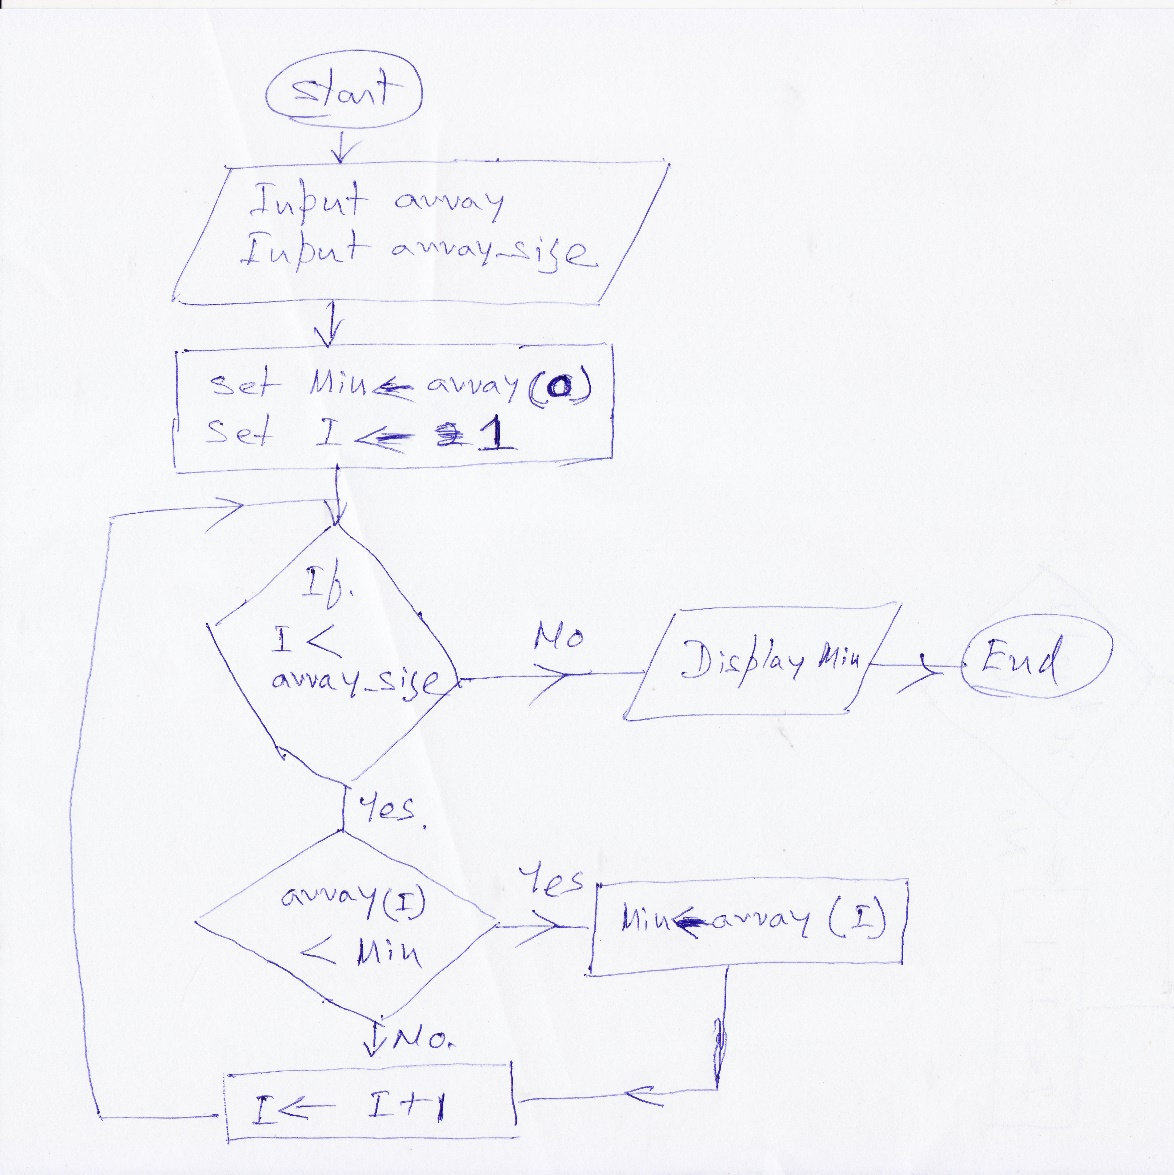 Start
Input array
Input array_size
Set Min ← array(0)
Set I ← 1
If.
I <
array_size
No
Display Min
End
Yes.
array(I)
< Min
Yes
Min ← array (I)
No.
I ← I+1